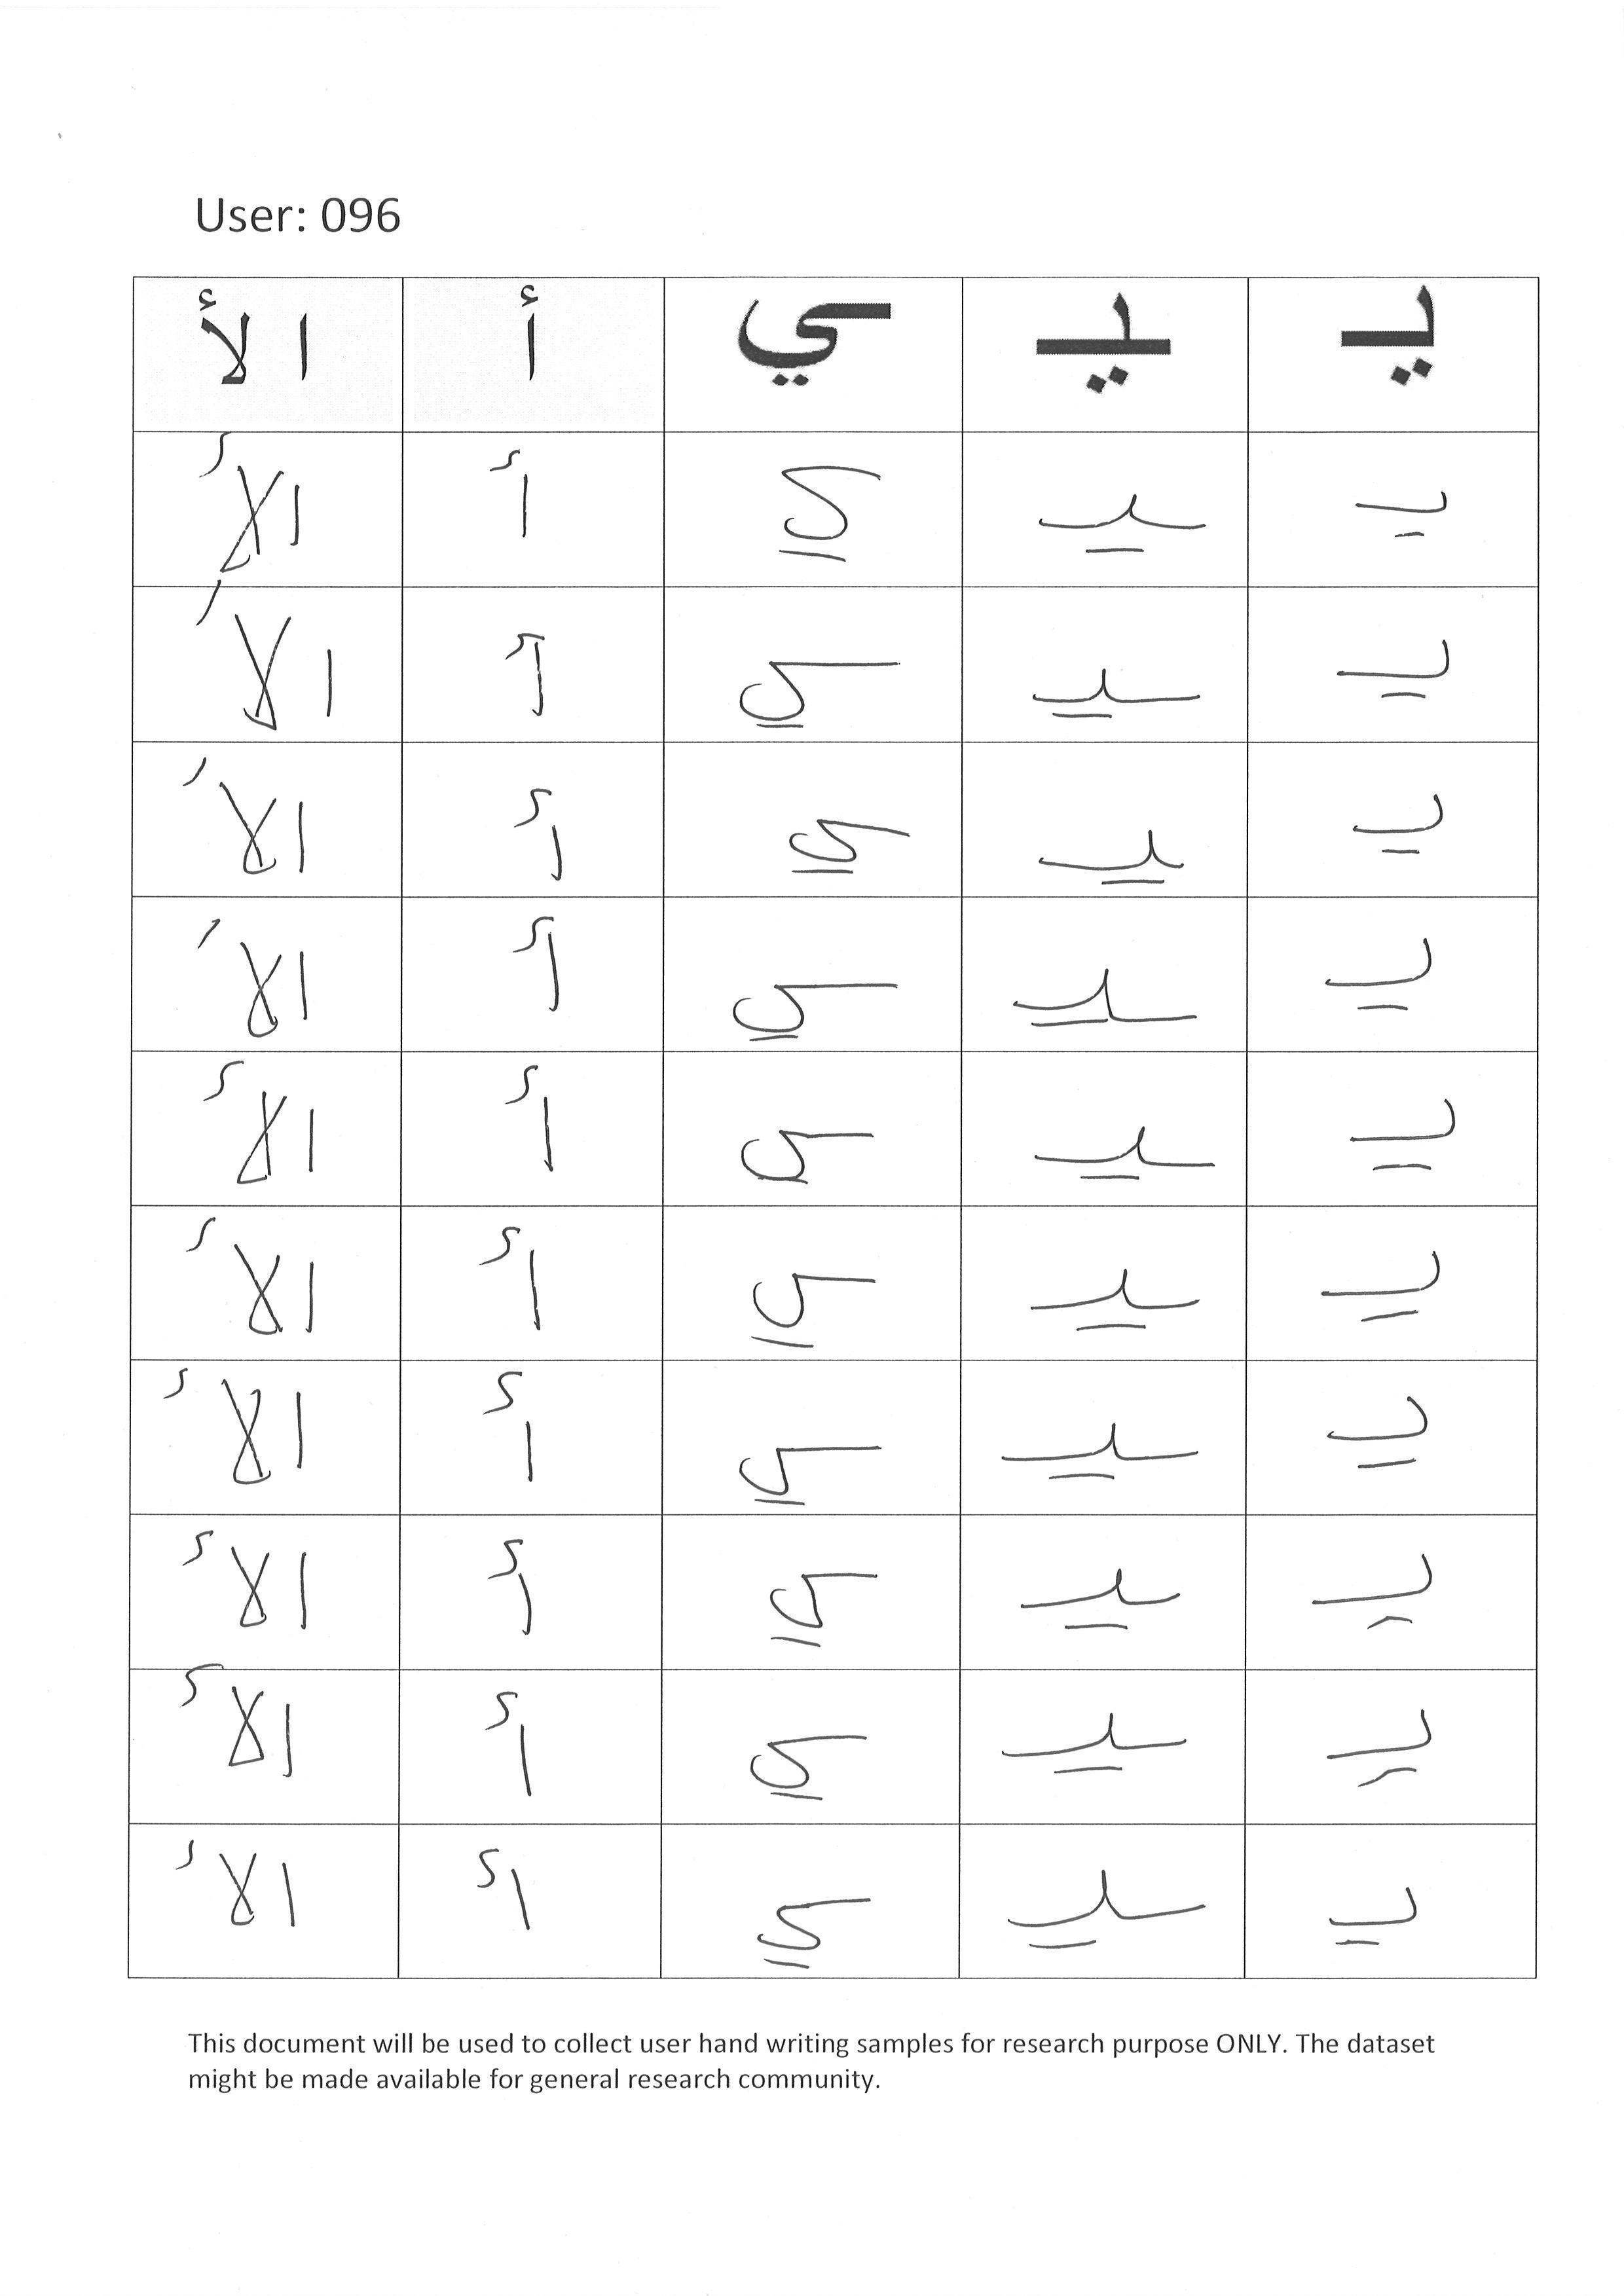 User: 096
يـ ـيـ ـي أ الأ
يـ ـيـ ـي أ الأ
يـ ـيـ ـي أ الأ
يـ ـيـ ـي أ الأ
يـ ـيـ ـي أ الأ
يـ ـيـ ـي أ الأ
يـ ـيـ ـي أ الأ
يـ ـيـ ـي أ الأ
يـ ـيـ ـي أ الأ
يـ ـيـ ـي أ الأ
يـ ـيـ ـي أ الأ
This document will be used to collect user hand writing samples for research purpose ONLY. The dataset
might be made available for general research community.